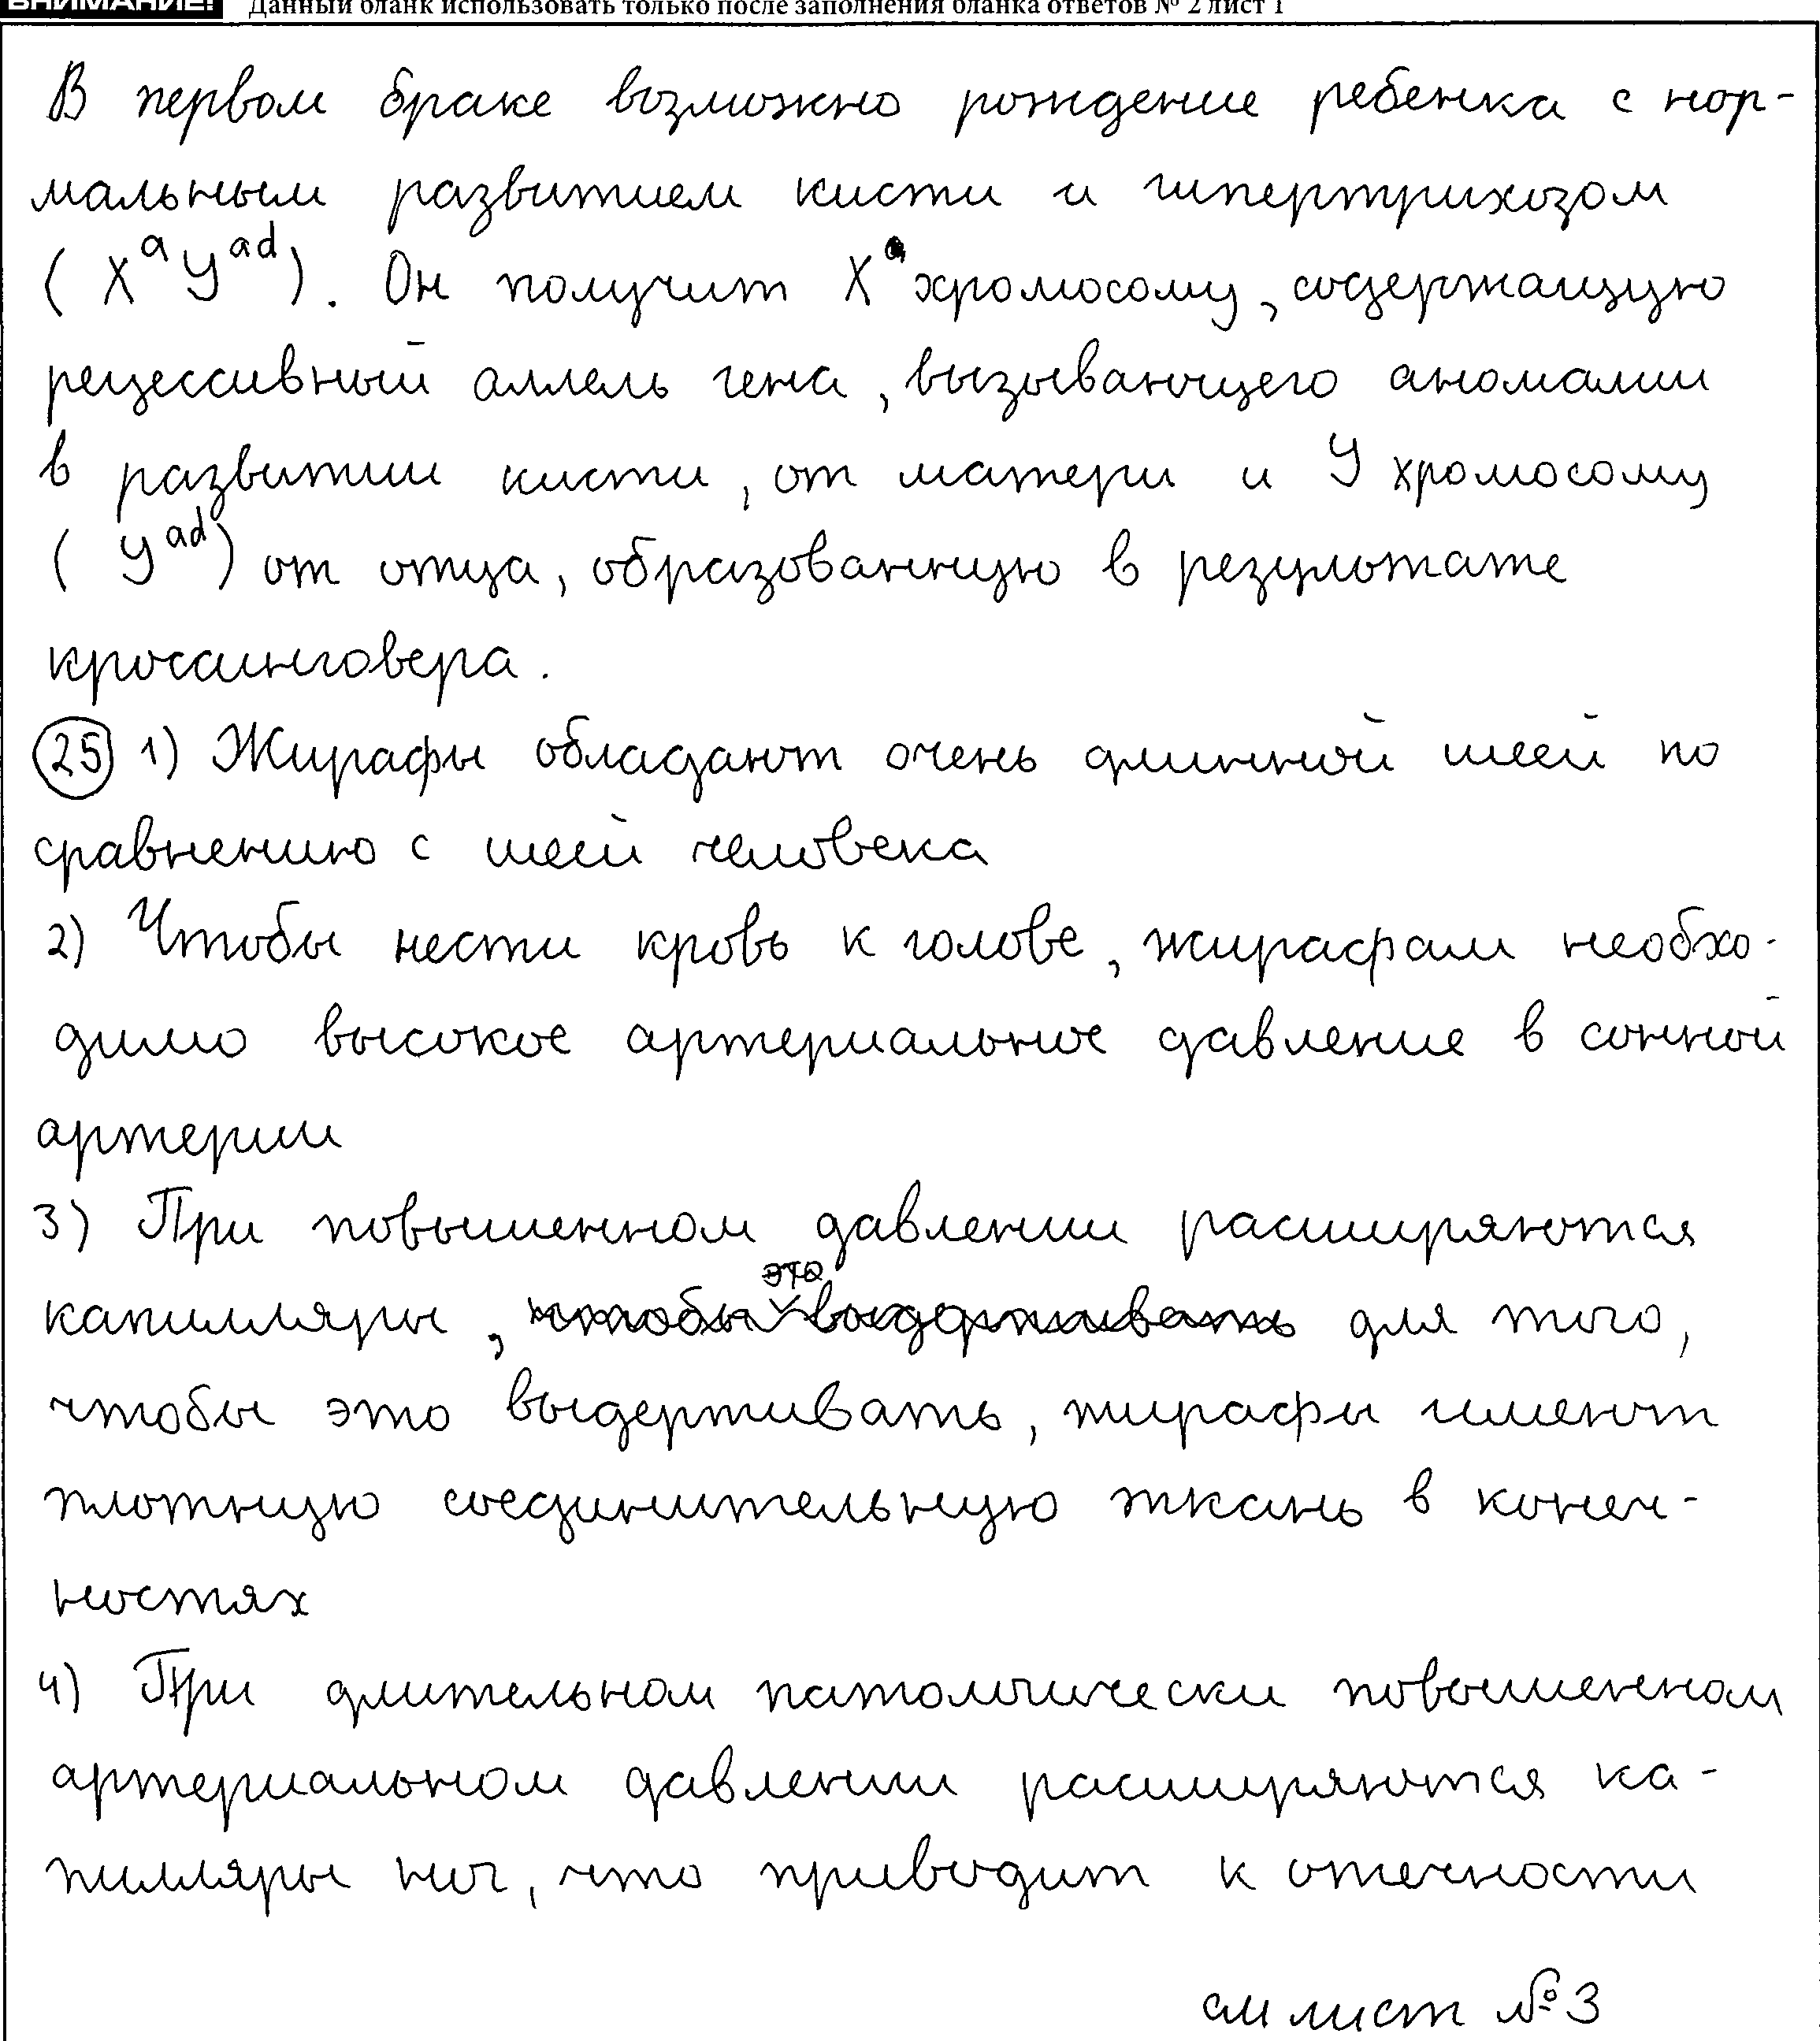 ВНИМАНИЕ! Данный бланк использовать только после заполнения бланка ответов № 2 лист 1
В первом браке возможно рождение ребенка с нор-
мальным развитием кисти и гипертрихозом
( X^a У^ad ). Он получит X хромосому, содержащую
рецессивный аллель гена, вызывающего аномалии
в развитии кисти, от матери и У хромосому
( У^ad ) от отца, образованную в результате
кроссинговера.
25 1) Жирафы обладают очень длинной шеей по
сравнению с шеей человека
2) Чтобы нести кровь к голове, жирафам необхо-
димо высокое артериальное давление в сонной
артерии
3) При повышенном давлении расширяются
капилляры, чтобы это выдерживать для того,
чтобы это выдерживать, жирафы имеют
плотную соединительную ткань в конеч-
ностях
4) При длительном патологически повышенном
артериальном давлении расширяются ка-
пилляры ног, что приводит к отечности
см лист №3